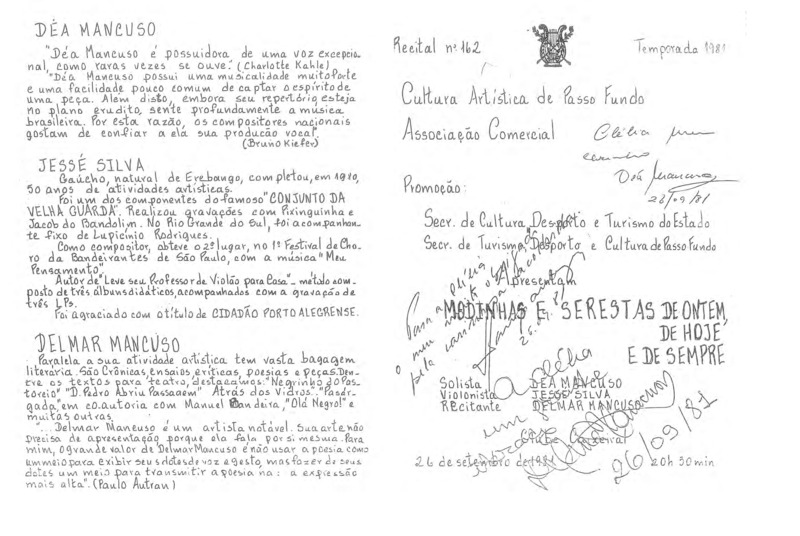 DÉA MANCUSO
"Déa Mancuso é possuidora de uma voz excepcio
nal, como raras vezes se ouve". (Charlotte Kahle)
"Déa Mancuso possui uma musicalidade muito forte
e uma facilidade pouco comum de captar o espírito de
uma peça. Além disto, embora seu repertório esteja
no plano erudito, sente profundamente a música
brasileira. Por esta razão, os compositores nacionais
gostam de confiar a ela sua produção vocal.
(Bruno Kiefer)
JESSÉ SILVA
Gaúcho, natural de Erebango, completou, em 1980,
50 anos de atividades artísticas.
Foi um dos componentes do famoso "CONJUNTO DA
VELHA GUARDA". Realizou gravações com Pixinguinha e
Jacob do Bandolim. No Rio Grande do Sul, foi acompanhan
te fixo de Lupicínio Rodrigues.
Como compositor, obteve o 2º lugar, no 1º Festival de Cho
ro da Bandeirantes de São Paulo, com a música "Meu
Pensamento".
Autor de "Leve seu Professor de Violão para Casa" - método com-
posto de três álbuns didáticos, acompanhados com a gravação de
três LPs.
Foi agraciado com o título de CIDADÃO PORTO ALEGRENSE.
DELMAR MANCUSO
Paralela a sua atividade artística tem vasta bagagem
literária. São Crônicas, ensaios, críticas, poesias e peças. Den-
tre os textos para teatro, destacamos: "Negrinho do Pas-
toreio" "D. Pedro Abriu Passagem" Atrás dos Vidros". "Pasár-
gada", em co.autoria com Manuel Bandeira, "Olá Negro!" e
muitas outras.
"... Delmar Mancuso é um artista notável. Sua arte não
precisa de apresentação porque ela fala por si mesma. Para
mim, o grande valor de Delmar Mancuso é não usar a poesia como
um meio para exibir seus dotes de voz e gesto, mas fazer de seus
dotes um meio para transmitir a poesia na: a expressão
mais alta". (Paulo Autran)
Recital nº 162
Temporada 1981
Cultura Artística de Passo Fundo
Associação Comercial
Clélia
carinho
Déa Mancuso
Promoção:
Secr. de Cultura Desporto e Turismo do Estado
Secr. de Turismo, Desporto e Cultura de Passo Fundo
Apresentam
Para a
o meu
pela
MODINHAS E SERESTAS DE ONTEM,
DE HOJE
E DE SEMPRE
Solista DÉA MANCUSO
Violonista JESSÉ SILVA
REcitante DELMAR MANCUSO
a Clélia
um
Clube Comercial
26/09/81
26 de setembro de 1981 20h 30min